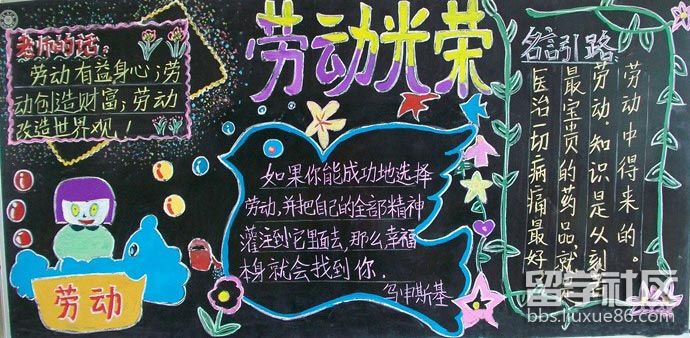 劳动光荣
老师的话:
劳动有益身心;劳
动创造财富;劳动
改造世界观!
劳动
如果你能成功地选择
劳动,并把自己的全部精神
灌注到它里面去,那么幸福
本身就会找到你.
乌申斯基
名言引路
医治一切病痛最好
最宝贵的药品,就是
劳动.知识是从刻苦
劳动中得来的。
留学社区
bbs.liuxue86.com